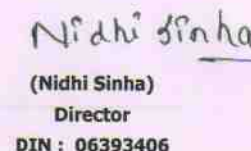 Nidhi Sinha
(Nidhi Sinha)
Director
DIN : 06393406